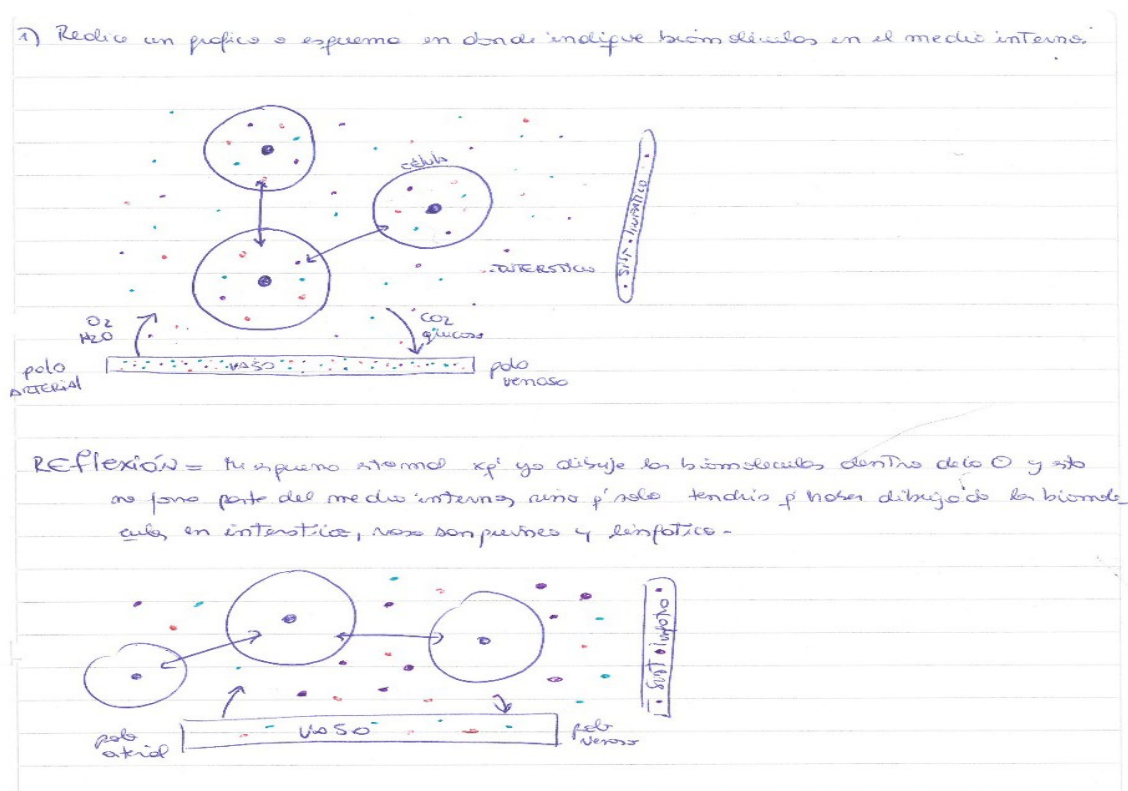 1) Realice un gráfico o esquema en donde indique biomoléculas en el medio interno.
célula
INTERSTICIO
SIST. linfático
O2
H2O
CO2
glucosa
polo
ARTERIAL
VASO
polo
venoso
REflexión = Mi esquema esta mal xq' yo dibuje las biomoleculas dentro de la O y esto
no forma parte del medio interno, sino q' solo tendria q' haber dibujado las biomole_
culas en intersticio, vaso sanguineo y linfatico -
polo
VASO
polo
venoso